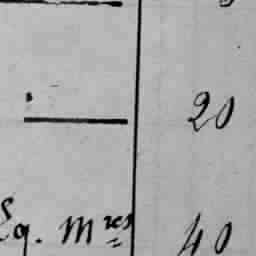 20
Eq. M^res 40